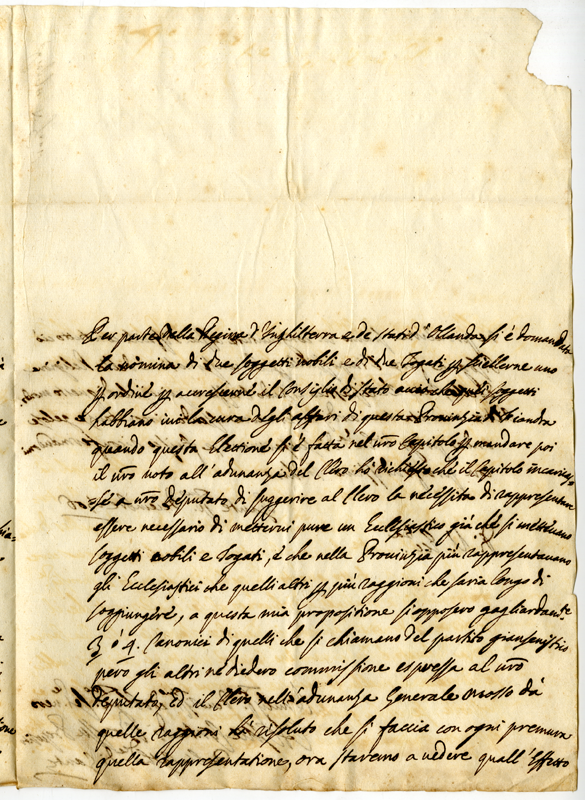 Per parte della Regina d'Inghilterra e de stati d'Olanda si è domandata
la nomina di due soggetti nobili e di due Togati p sciellerne uno
p ordine p accrescerne il Consiglio di stato acciò che quei soggetti
habbiano iui la cura degli affari di questa Prouinzia di fiandra
quando questa Elettione si è fatta nel nro Capitolo p mandare poi
il nro uoto all'adunanza del Clero hò richiesto che il Capitolo incaricas-
-se a nro deputato di suggerire al Clero la necessità di rappresentare
essere necessario di metterui pure un Ecclesiastico già che si metteuano
soggetti nobili e Togati, e che nella Prouinzia più rappresentauano
gli Ecclesiastici che quelli altri p più raggioni che saria longo di
soggiungere, a questa mia propositione si opposero gagliardamte
3 ò 4. Canonici di quelli che si chiamano del partito giansenistico
però gli altri ne diedero commissione espressa al nro
deputato, ed il Clero nell'adunanza Generale mosso dà
quelle raggioni hà risoluto che si faccia con ogni premura
quella rappresentatione, ora staremo a uedere quall'effetto